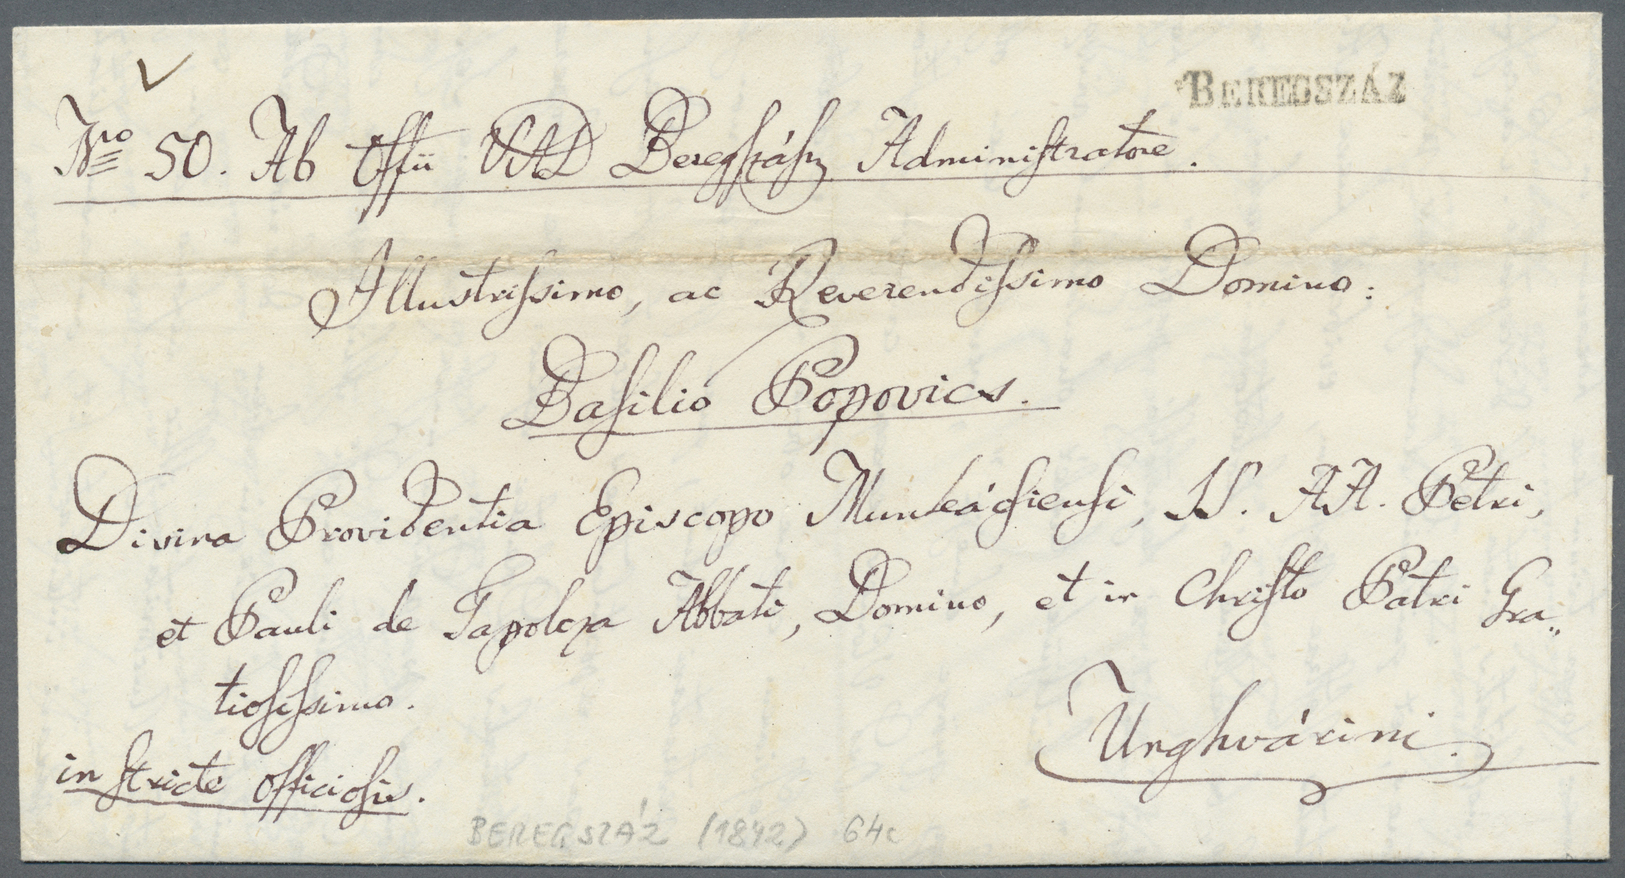 BEREGSZÁZ
Nro 50. Ab Offii VAD Beregszász Administratore.
Illustrissimo, ac Reverendissimo Domino:
Basilio Popovics.
Divina Providentia Episcopo Munkácsiensi, SS. AA. Petri,
et Pauli de Tapolcza Abbati, Domino, et in Christo Patri Gra„
tiosissimo.
Unghvárini.
in stricte officiosis.
BEREGSZÁZ (1842) 64c